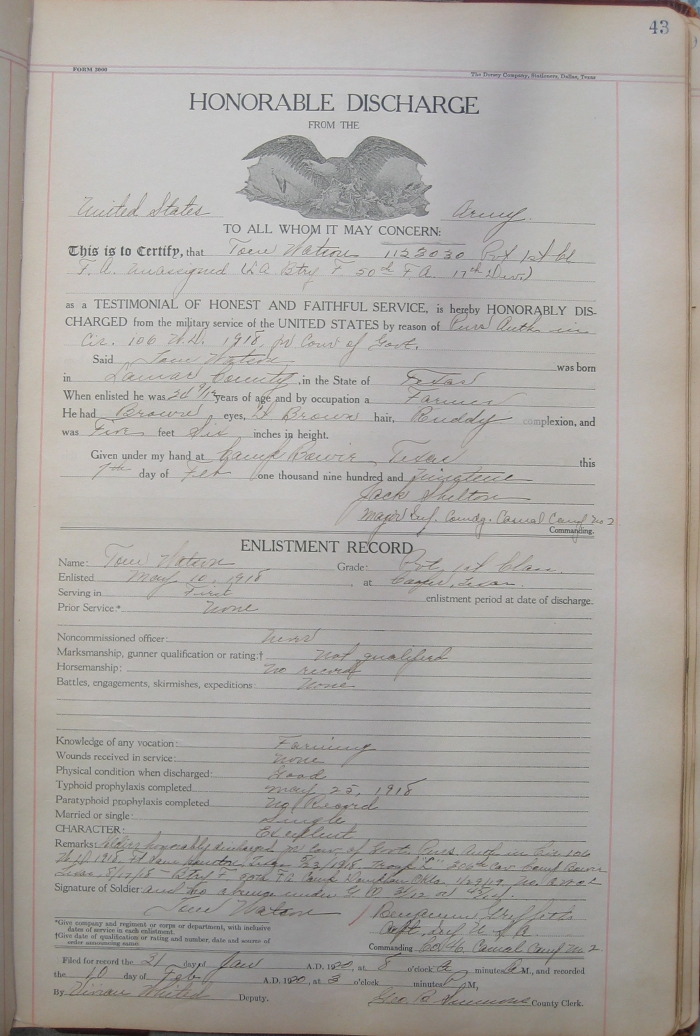 43
FORM 2000
The Dorsey Company, Stationers, Dallas, Texas
HONORABLE DISCHARGE
FROM THE
United States Army.
TO ALL WHOM IT MAY CONCERN:
This is to Certify, that Tom Watson 1123030 Pvt 1st Cl
F. A. Unassigned (LA Btry F. 50th F A. 17th Div)
as a TESTIMONIAL OF HONEST AND FAITHFUL SERVICE, is hereby HONORABLY DIS-
CHARGED from the military service of the UNITED STATES by reason of Auth in
Cir. 106 W.D. 1918, Conv of Govt.
Said Tom Watson was born
in Lamar County, in the State of Texas
When enlisted he was years of age and by occupation a Farmer
He had Brown eyes, Brown hair, Ruddy complexion, and
was Five feet Six inches in height.
Given under my hand at Camp Bowie, Texas this
7th day of Feb one thousand nine hundred and nineteen
Jack Shelton
Major Inf. Comdg. Casual Camp No 2
Commanding.
ENLISTMENT RECORD
Name: Tom Watson Grade: Pvt, 1st Class.
Enlisted May 10, 1918 at Texas.
Serving in First enlistment period at date of discharge.
Prior Service.* None
Noncommissioned officer:
Marksmanship, gunner qualification or rating:† Not qualified
Horsemanship: No record
Battles, engagements, skirmishes, expeditions: None
Knowledge of any vocation: Farming
Wounds received in service: None
Physical condition when discharged: Good
Typhoid prophylaxis completed May 25, 1918
Paratyphoid prophylaxis completed No Record
Married or single: Single
CHARACTER: Excellent
Remarks: Soldier honorably discharged Conv of Govt. Auth in Cir. 106
W.D. 1918. 1918, Troop "L" Cav Camp Bowie
Texas, Btry F 50th F A Camp Okla
Signature of Soldier and no absence under G. O. 31/12 or 45/14.
Tom Watson Benjamin Griffith
*Give company and regiment or corps or department, with inclusive
dates of service in each enlistment.
Capt. Inf U. S. A
†Give date of qualification or rating and number, date and source of
order announcing same.
Commanding Casual Camp No 2
Filed for record the 21 day of Jan A.D. 1920, at 8 o'clock minutes A M., and recorded
the 10 day of Feb A.D. 1920, at 3 o'clock minutes P M,
By Deputy. Geo. B. Simmons County Clerk.